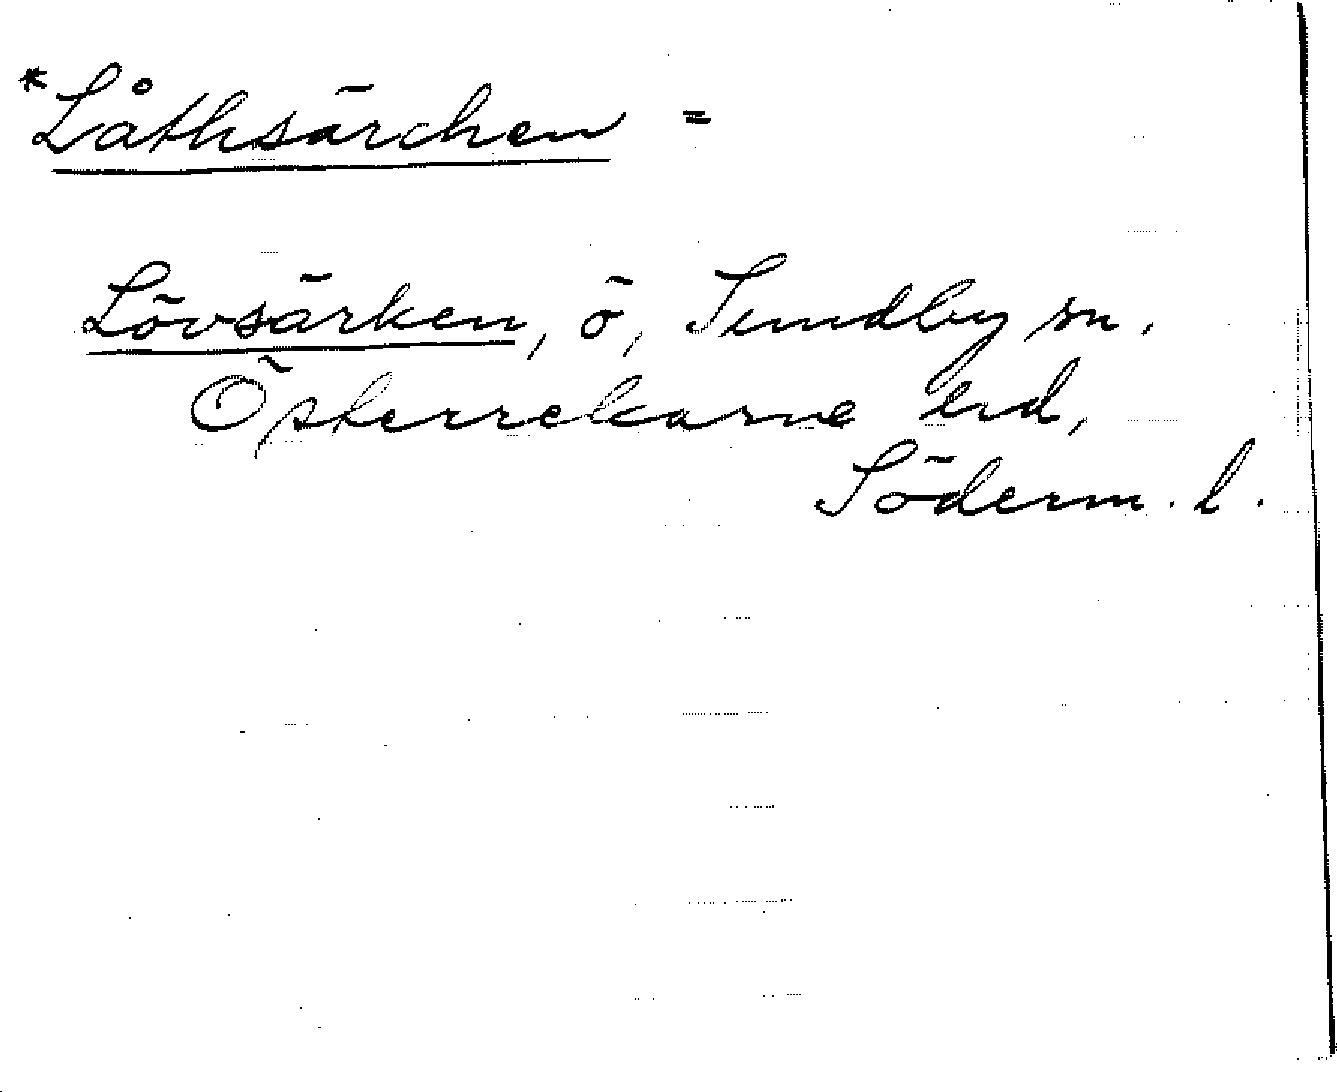 *Låthsärchen =
Lövsärken, ö, Sundby sn.
Österrekarne hd,
Söderm. l.